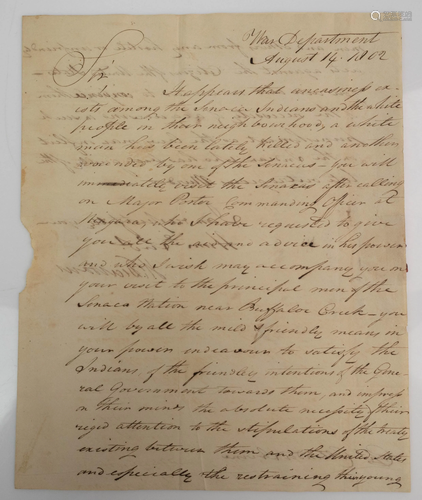 War Department
August 14. 1802
Sir
It appears that uneasiness ex-
ists among the Seneca Indians and the white
people in their neighbourhood, a white
man has been lately killed and another
wounded by one of the Senecas — you will
immediately visit the Senecas after calling
on Major Porter Commanding Officer at
Niagara who I have requested to give
you all the aid and advice in his power
and who I wish may accompany you on
your visit to the principal men of the
Seneca Nation near Buffaloe Creek — you
will by all the mild & friendly means in
your power endeavour to satisfy the
Indians of the friendly intentions of the Gene-
ral Government towards them, and impress
on their minds the absolute necessity of their
rigid attention to the stipulations of the treaty
existing between them and the United States
and especially the restraining their young